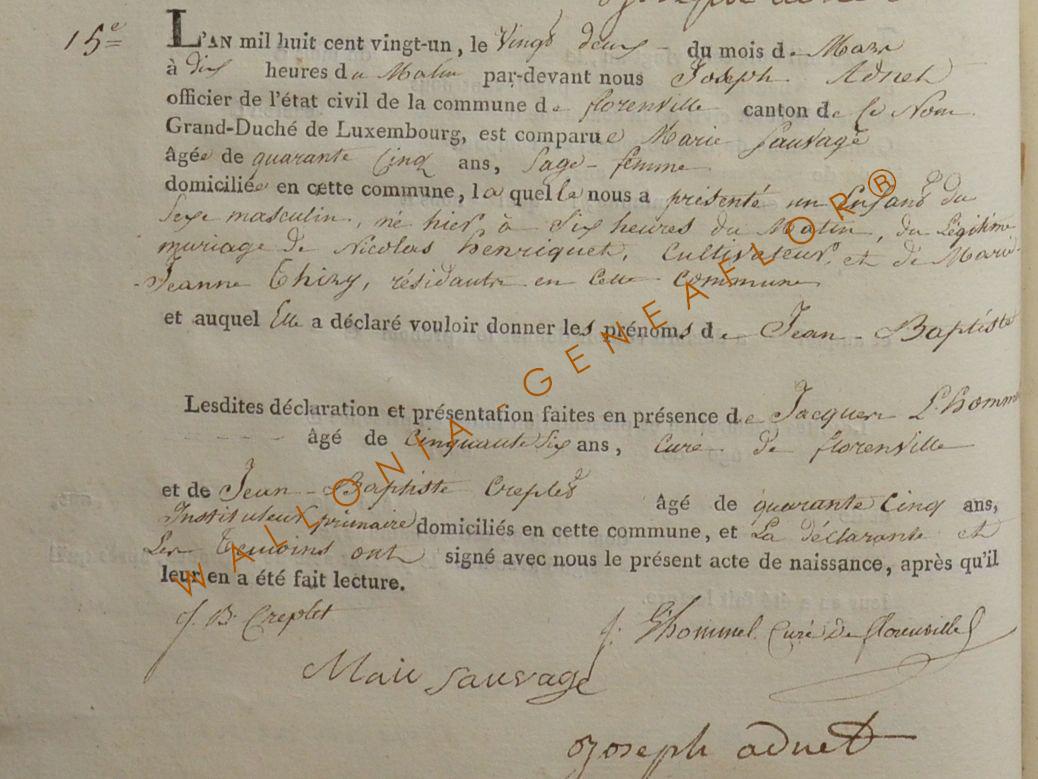 15e
L'AN mil huit cent vingt-un, le Vingt deux du mois de Mars
à dix heures du Matin par-devant nous Joseph Adnet
officier de l'état civil de la commune de florenville canton de Ce Nom
Grand-Duché de Luxembourg, est comparue Marie Sauvage
âgée de quarante Cinq ans, Sage-femme
domiciliée en cette commune, la quelle nous a présenté un Enfant du
Sexe masculin, né hier à Six heures du Matin, du Légitime
mariage de Nicolas henriquet, Cultivateur, et de Marie-
Jeanne Thiry, résidants en Cette Commune
et auquel Elle a déclaré vouloir donner les prénoms de Jean-Baptiste
Lesdites déclaration et présentation faites en présence de Jacques L'homm
âgé de Cinquante Six ans, Curé de florenville
et de Jean-Baptiste Creplet âgé de quarante Cinq ans,
Instituteur primaire domiciliés en cette commune, et La déclarante et
Les Temoins ont signé avec nous le présent acte de naissance, après qu'il
leur en a été fait lecture.
J. B. Creplet
j. L'hommel Curé de florenville
Marie Sauvage
Joseph adnet
WALLONIA - GENEAFLOR®